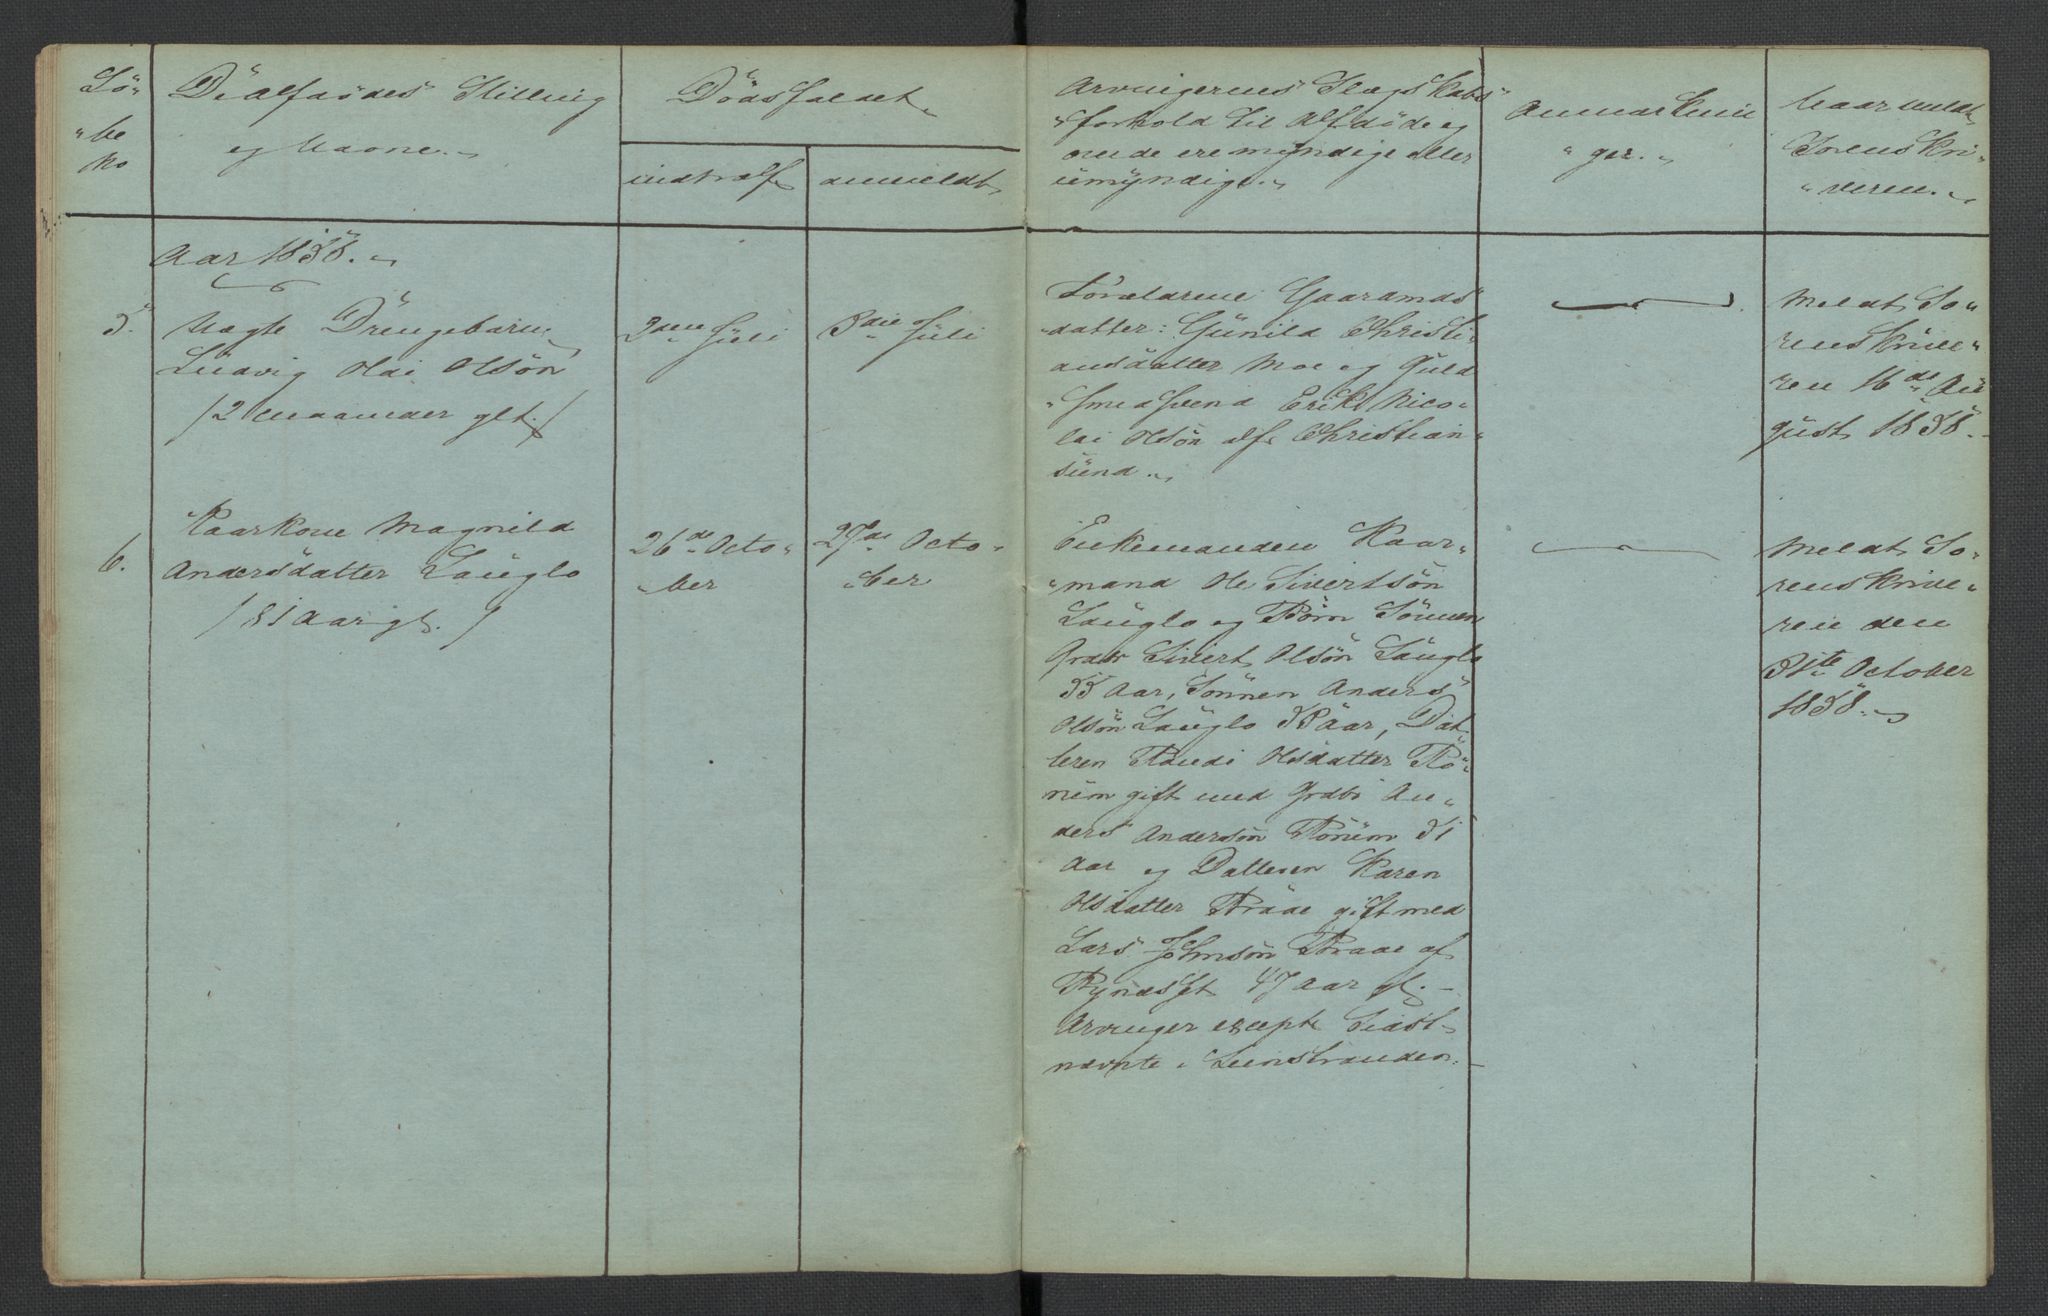 Lö„
„be
No
De Afdödes Stilling
og Navne.„
Dödsfaldet„
indtraf„
anmeldt„
Arvingernes Slægskabs„
„forhold til Afdöde og
om de ere myndige eller
umyndige.„
Anmærknin
„ger.„
Naar meldt
Sorenskri„
„veren.„
Aar 1858.„
5.
Uægte Drengebarn„
Ludvig Odi Olsön
/2 maaneder glt./
2den Juli
3die Juli
Forældrene Gaarmands„
„datter: Gunild Christi„
ansdatter Moe og Guld
„smedsvend Erik Nico„
lai Olsön af Christian„
sund.„
meldt So„
renskrive„
ren 16de Au
gust 1858.„
6.
Kaarkone Magnild
Andersdatter Lauglo
/81 Aar gl./
26de Octo„
„ber
27de Octo„
„ber
Enkemanden Kaar„
„mand Ole Sivertsön
Lauglo og Börn Sönnen
Grdbr Sivert Olsön Lauglo
55 Aar, Sönnen Anders
Olsön Lauglo 53 Aar, Dat„
teren Randi Olsdatter Rö„
num gift med Grdbr An„
ders Andersön Rönum 51
Aar og Datteren Karen
Olsdatter Braae gift med
Lars Johnsön Braae af
Byneset 47 Aar gl.„
Arvinger except Sidst„
nævnte i Leinstranden.„
meldt So„
renskrive„
ren den
31te October
1858.„